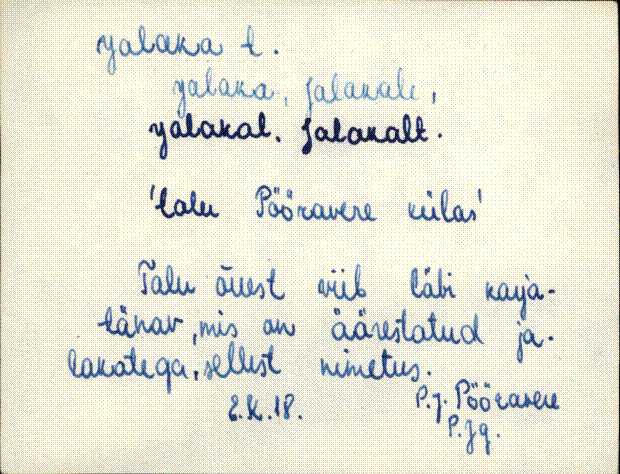 Jalaka t.
Jalaka, Jalakale,
Jalakal. Jalakalt.
'talu Pööravere külas'
Talu õuest viib läbi karja-
tänav, mis on äärestatud ja-
lakatega, sellest nimetus.
E.K. 18. P.J. Pööravere
P.Jg.